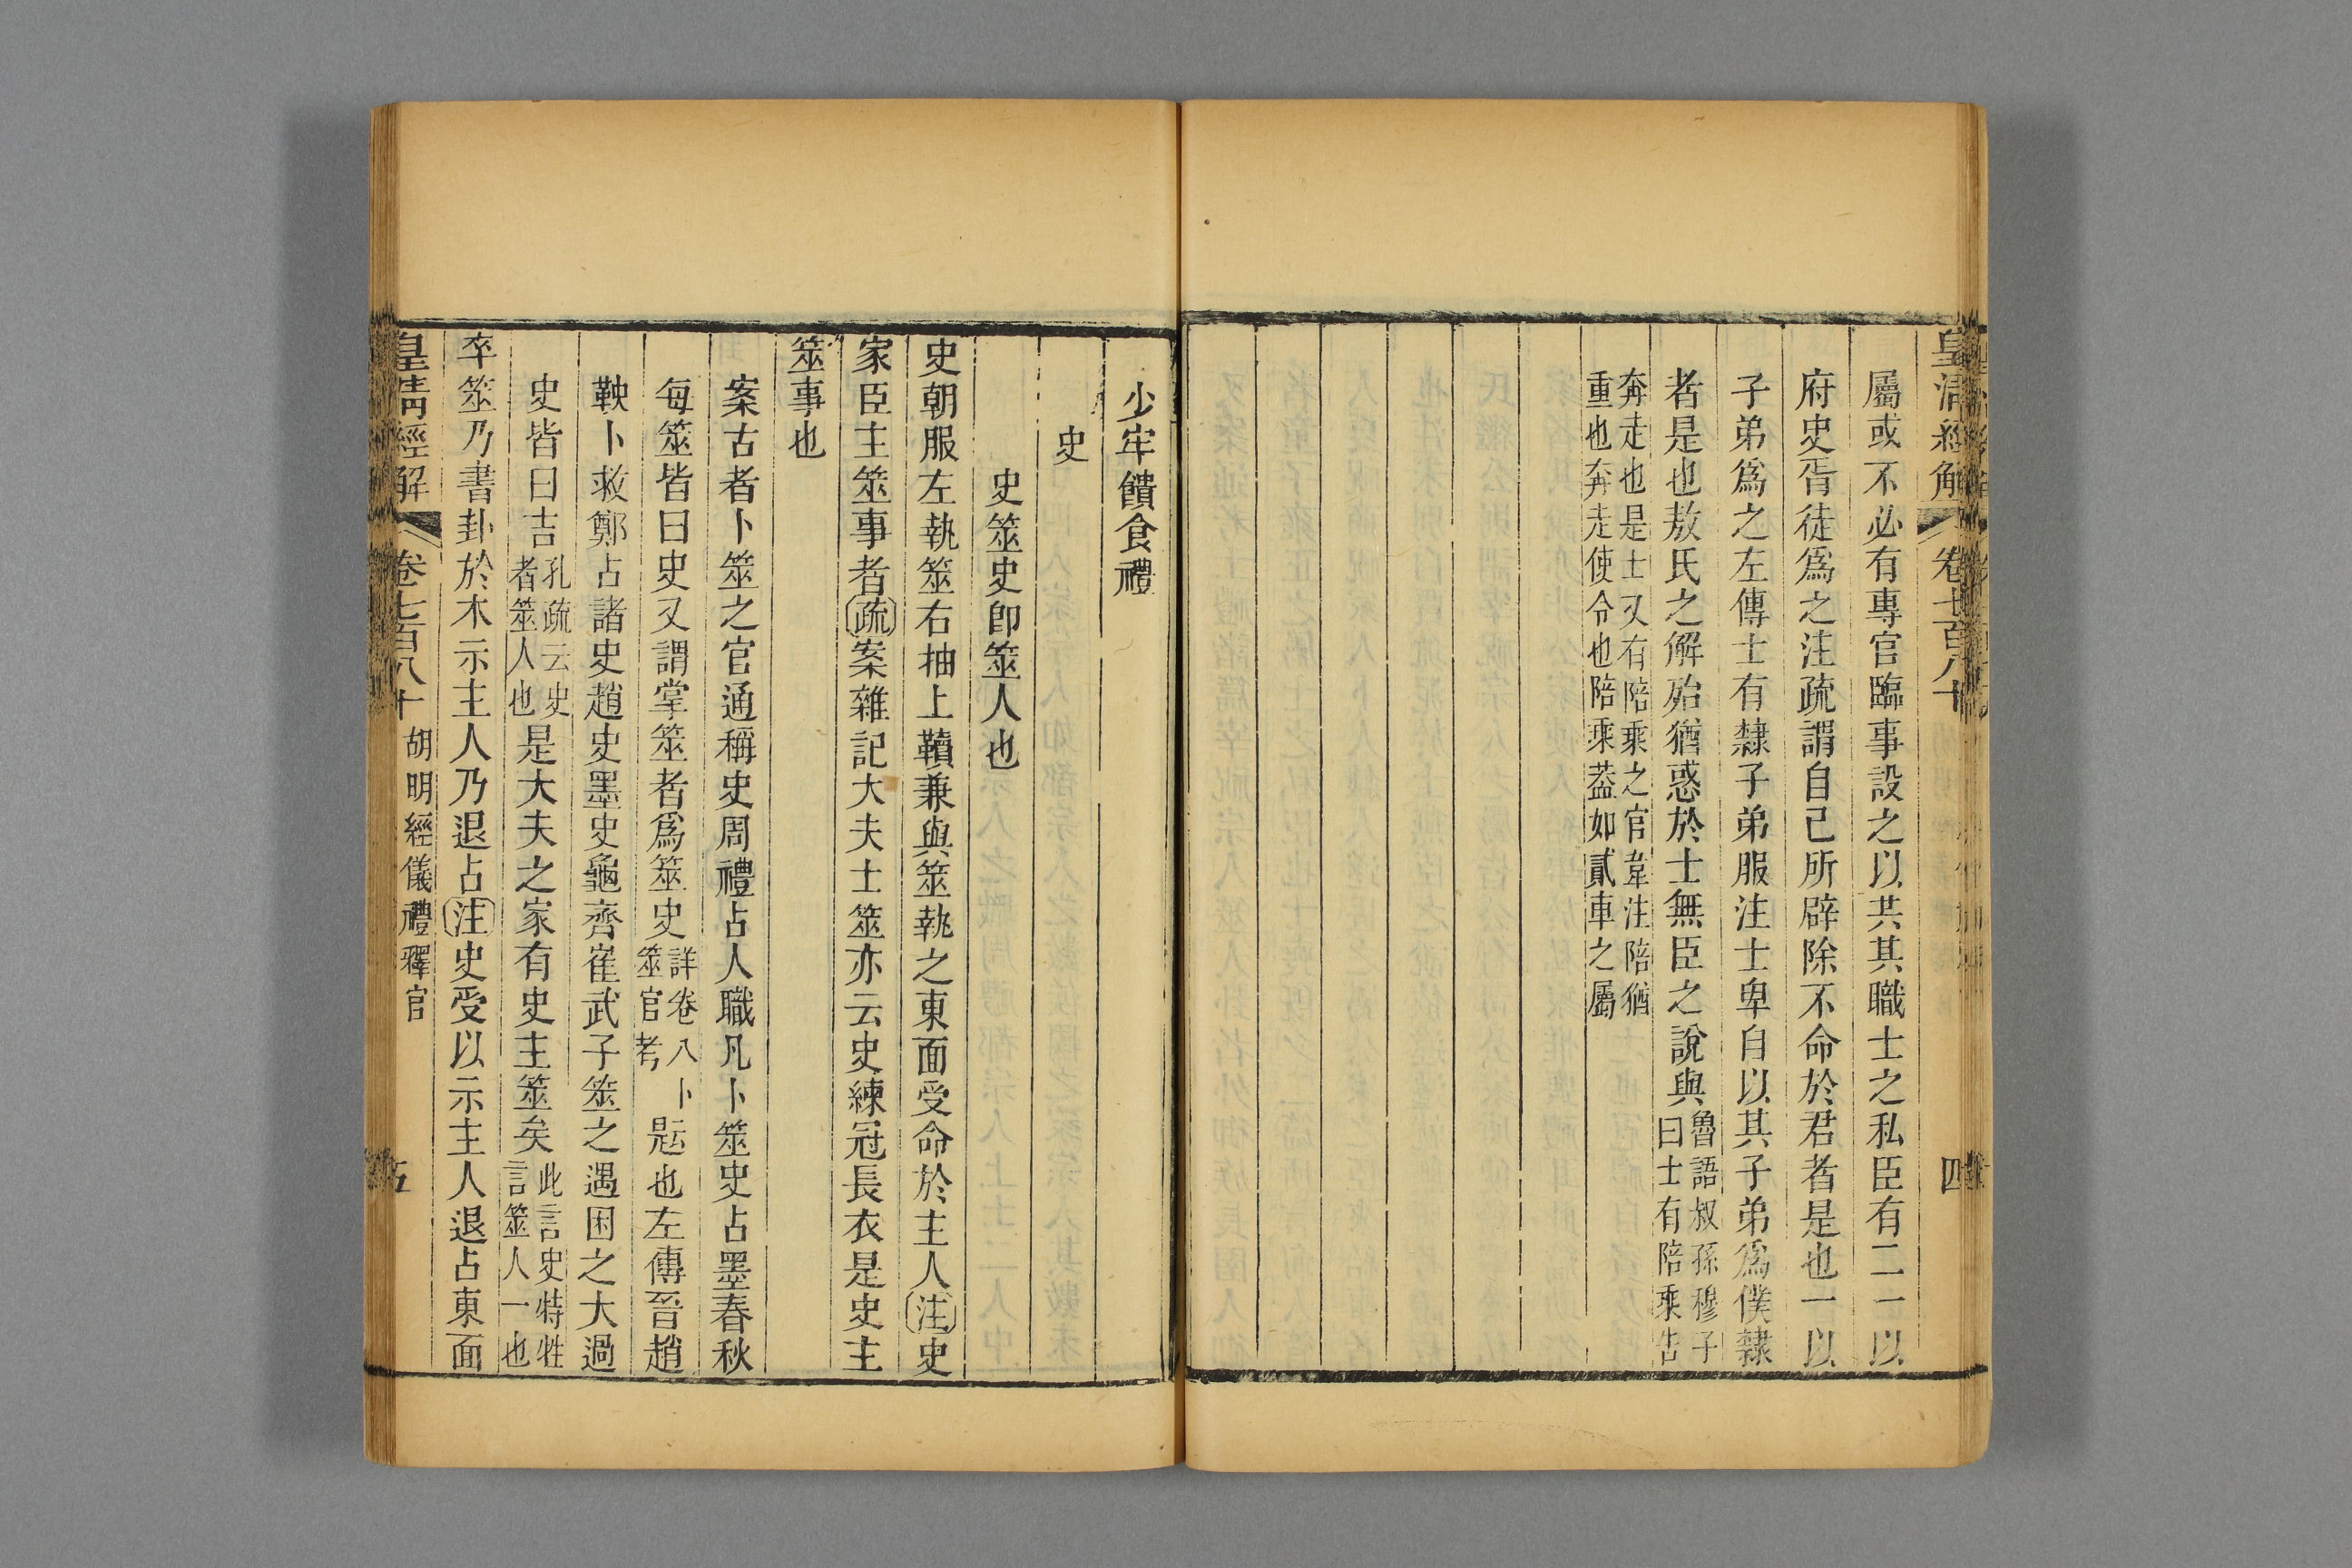 皇清經解 卷七百八十 四
屬或不必有專官臨事設之以共其職士之私臣有二一以
府史胥徒爲之注疏謂自己所辟除不命於君者是也一以
子弟爲之左傳士有隸子弟服注士卑自以其子弟爲僕隸
者是也敖氏之解殆猶惑於士無臣之說與魯語叔孫穆子
曰士有陪乘告
奔走也是士又有陪乘之官韋注陪猶
重也奔走使令也陪乘葢如貳車之屬
少牢饋食禮
史
史筮史卽筮人也
史朝服左執筮右抽上韇兼與筮執之東面受命於主人注史
家臣主筮事者疏案雜記大夫士筮亦云史練冠長衣是史主
筮事也
案古者卜筮之官通稱史周禮占人職凡卜筮史占墨春秋
每筮皆曰史又謂掌筮者爲筮史詳卷八
筮官考
卜㔭也左傳晉趙
鞅卜救鄭占諸史趙史墨史龜齊崔武子筮之遇困之大過
史皆曰吉孔疏云史
者筮人也
是大夫之家有史主筮矣此言史特牲
言筮人一也
卒筮乃書卦於木示主人乃退占注史受以示主人退占東面
皇清經解 卷七百八十 胡明經儀禮釋官 五